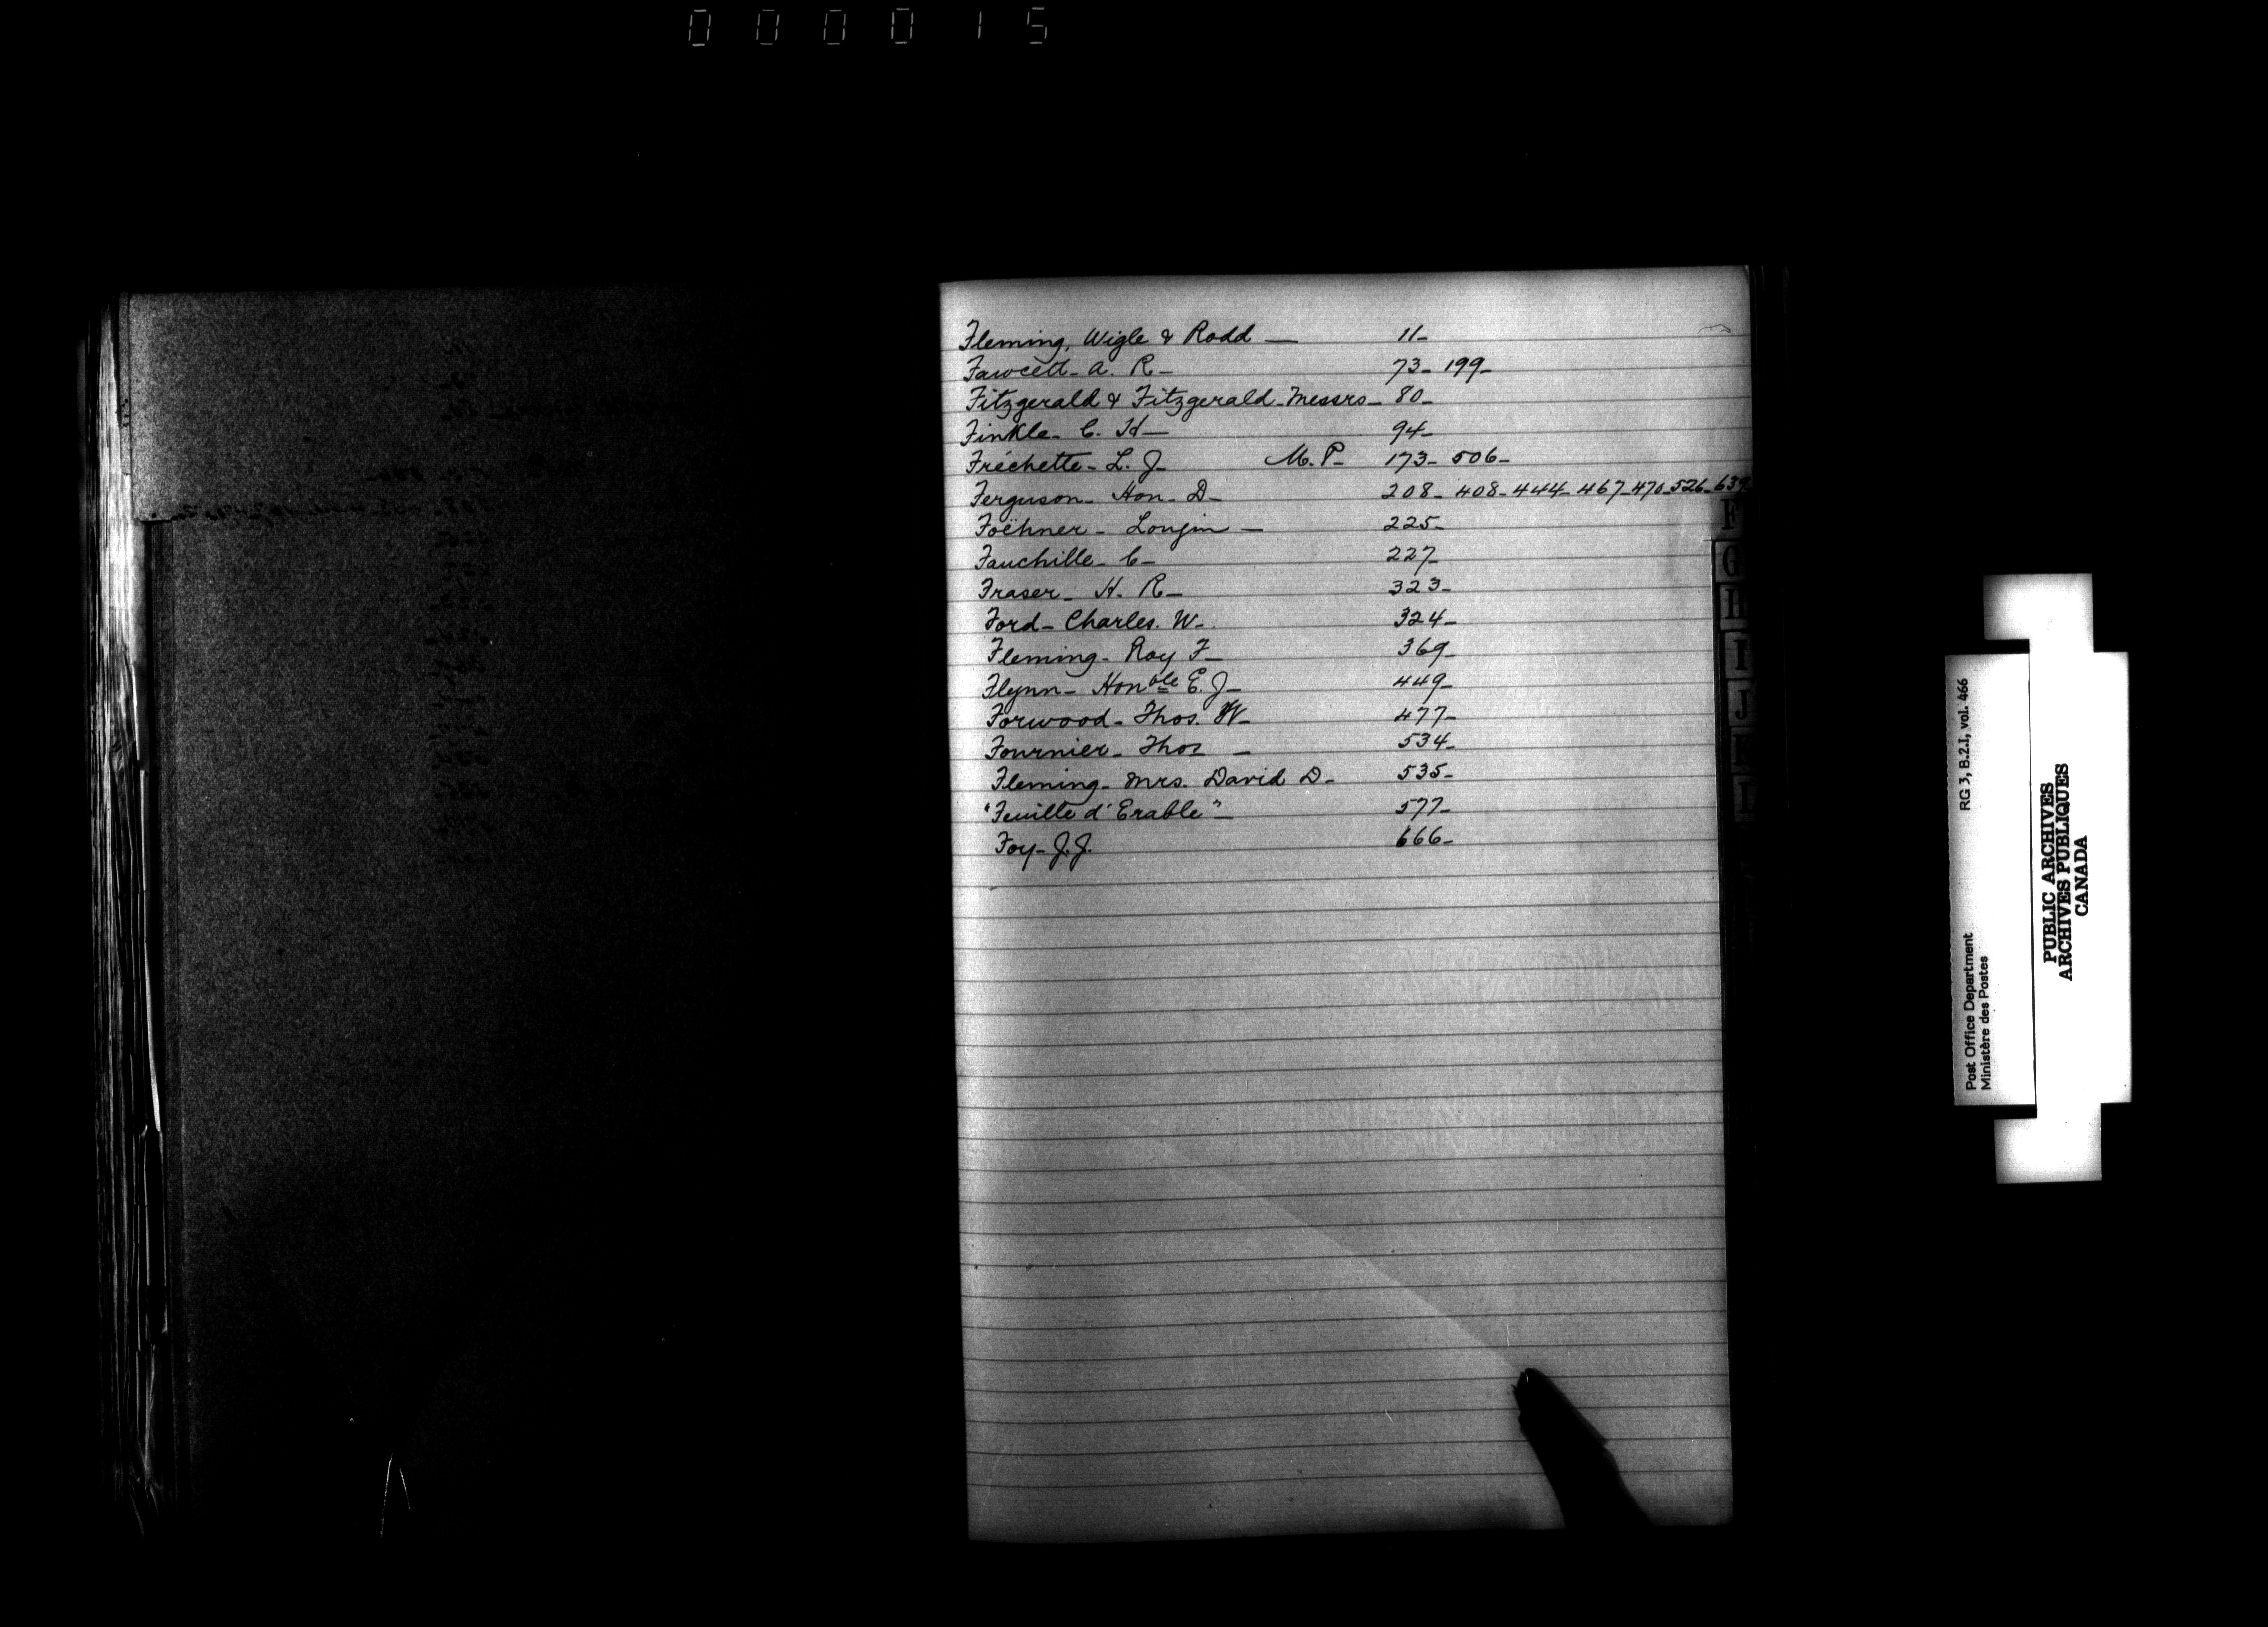 000015
Fleming, Wigle & Rodd — 11-
Fawcett- A. R- 73- 199-
Fitzgerald & Fitzgerald-Messrs- 80-
Finkle- C. H- 94-
Fréchette- L. J- M.P- 173- 506-
Ferguson- Hon- D- 208- 408- 444- 467- 470- 526- 639
Foëhner- Longin - 225-
Fauchille- C- 227-
Fraser- H. R- 323-
Ford- Charles. W- 324-
Fleming- Roy F- 369-
Flynn- Honble E. J- 449-
Forwood- Thos. W- 477-
Fournier- Thos - 534-
Fleming- Mrs. David D- 535-
"Feuille d'Erable"- 577-
Foy- J.J. 666-
F
G
H
I
J
K
L
Post Office Department RG 3, B.2.I, vol. 466
Ministère des Postes
PUBLIC ARCHIVES
ARCHIVES PUBLIQUES
CANADA